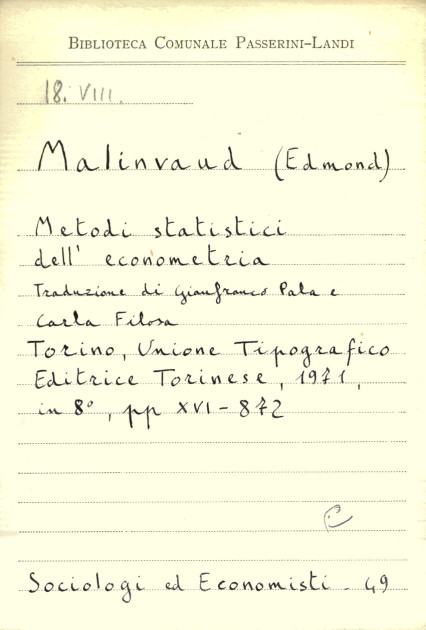 BIBLIOTECA COMUNALE PASSERINI-LANDI
18. VIII.
Malinvaud (Edmond)
Metodi statistici
dell' econometria
Traduzione di Gianfranco Pala e
Carla Filosa
Torino, Unione Tipografico
Editrice Torinese, 1971,
in 8°, pp XVI - 872
C
Sociologi ed Economisti - 49